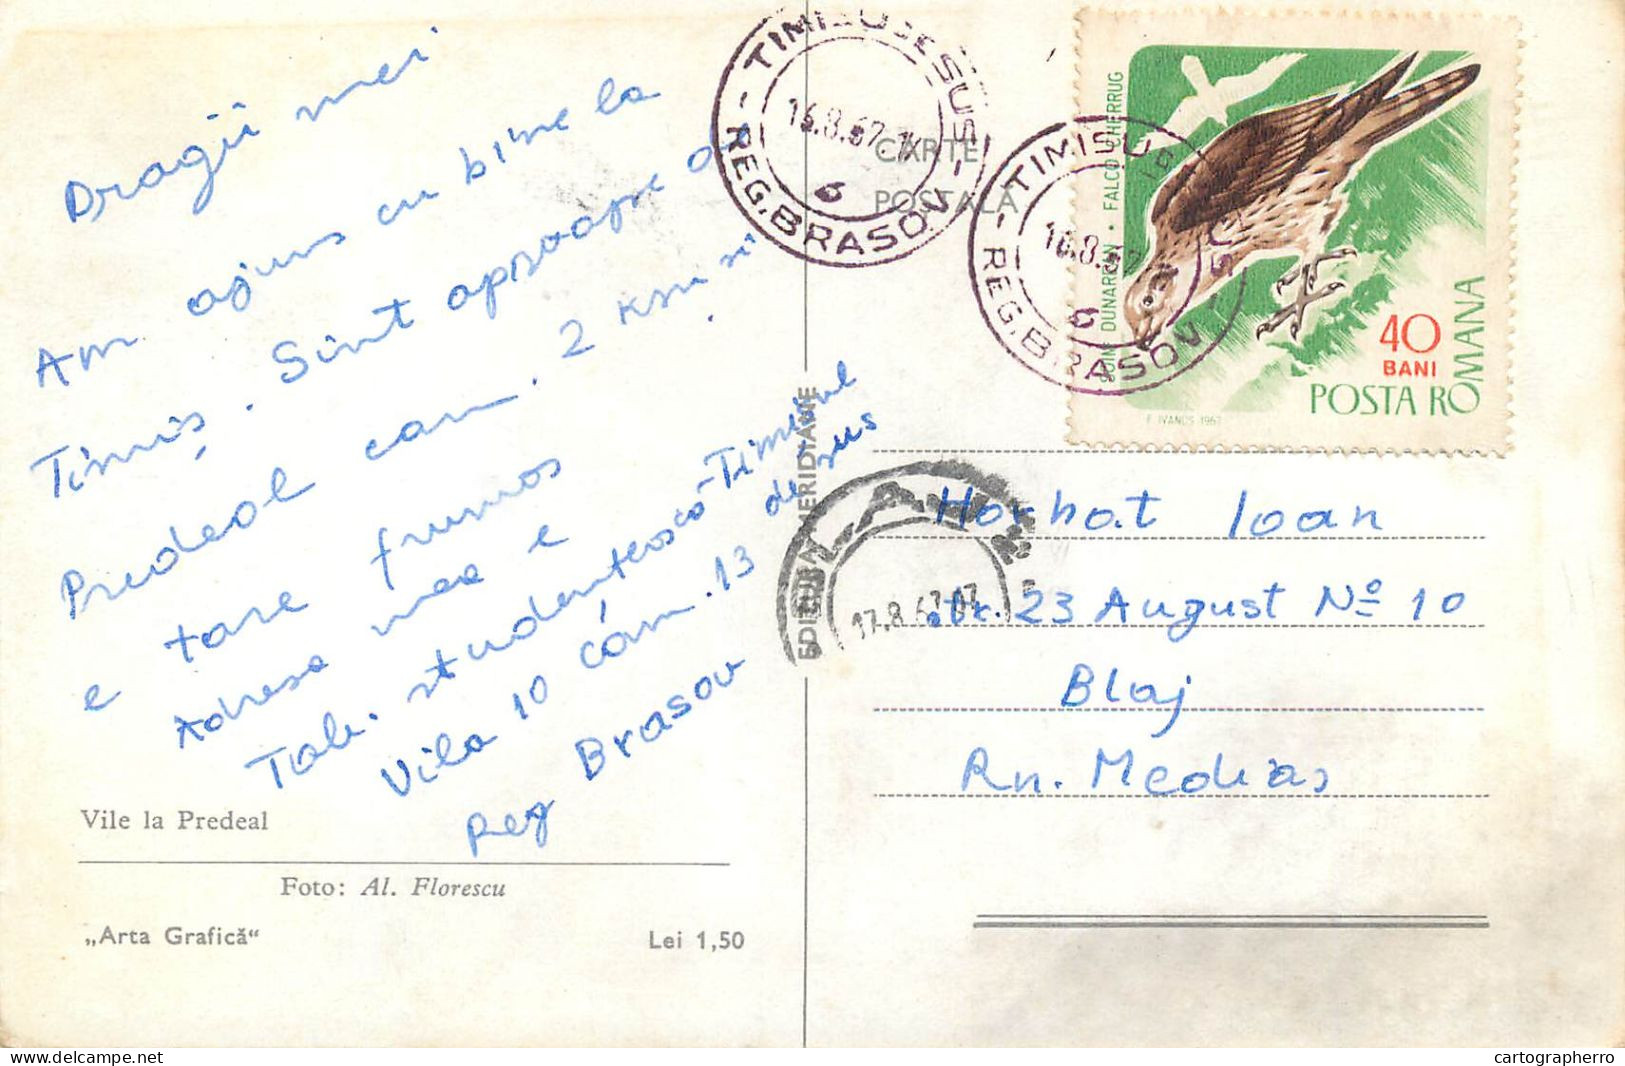 Dragii mei
Am ajuns cu bine la
Timiș. Sînt aproape de
Predeal cam. 2 km și
e tare frumos
Adresa mea e
Tab. studentească-Timișul
de sus
Vila 10 cam. 13
Reg Brasov
Vile la Predeal
Foto: Al. Florescu
„Arta Grafică“
Lei 1,50
EDITURA MERIDIANE
CARTE
POȘTALĂ
TIMISU DE SUS
16.8.67
6
REG. BRASOV
TIMISU
SUS
16.8.67
6
REG. BRASOV
ȘOIM DUNĂREAN • FALCO CHERRUG
40
BANI
POSTA ROMANA
F. IVANUS 1967
17.8.67
Horhat Ioan
str. 23 August Nº 10
Blaj
Rn. Medias
delcampe.net
cartographerro